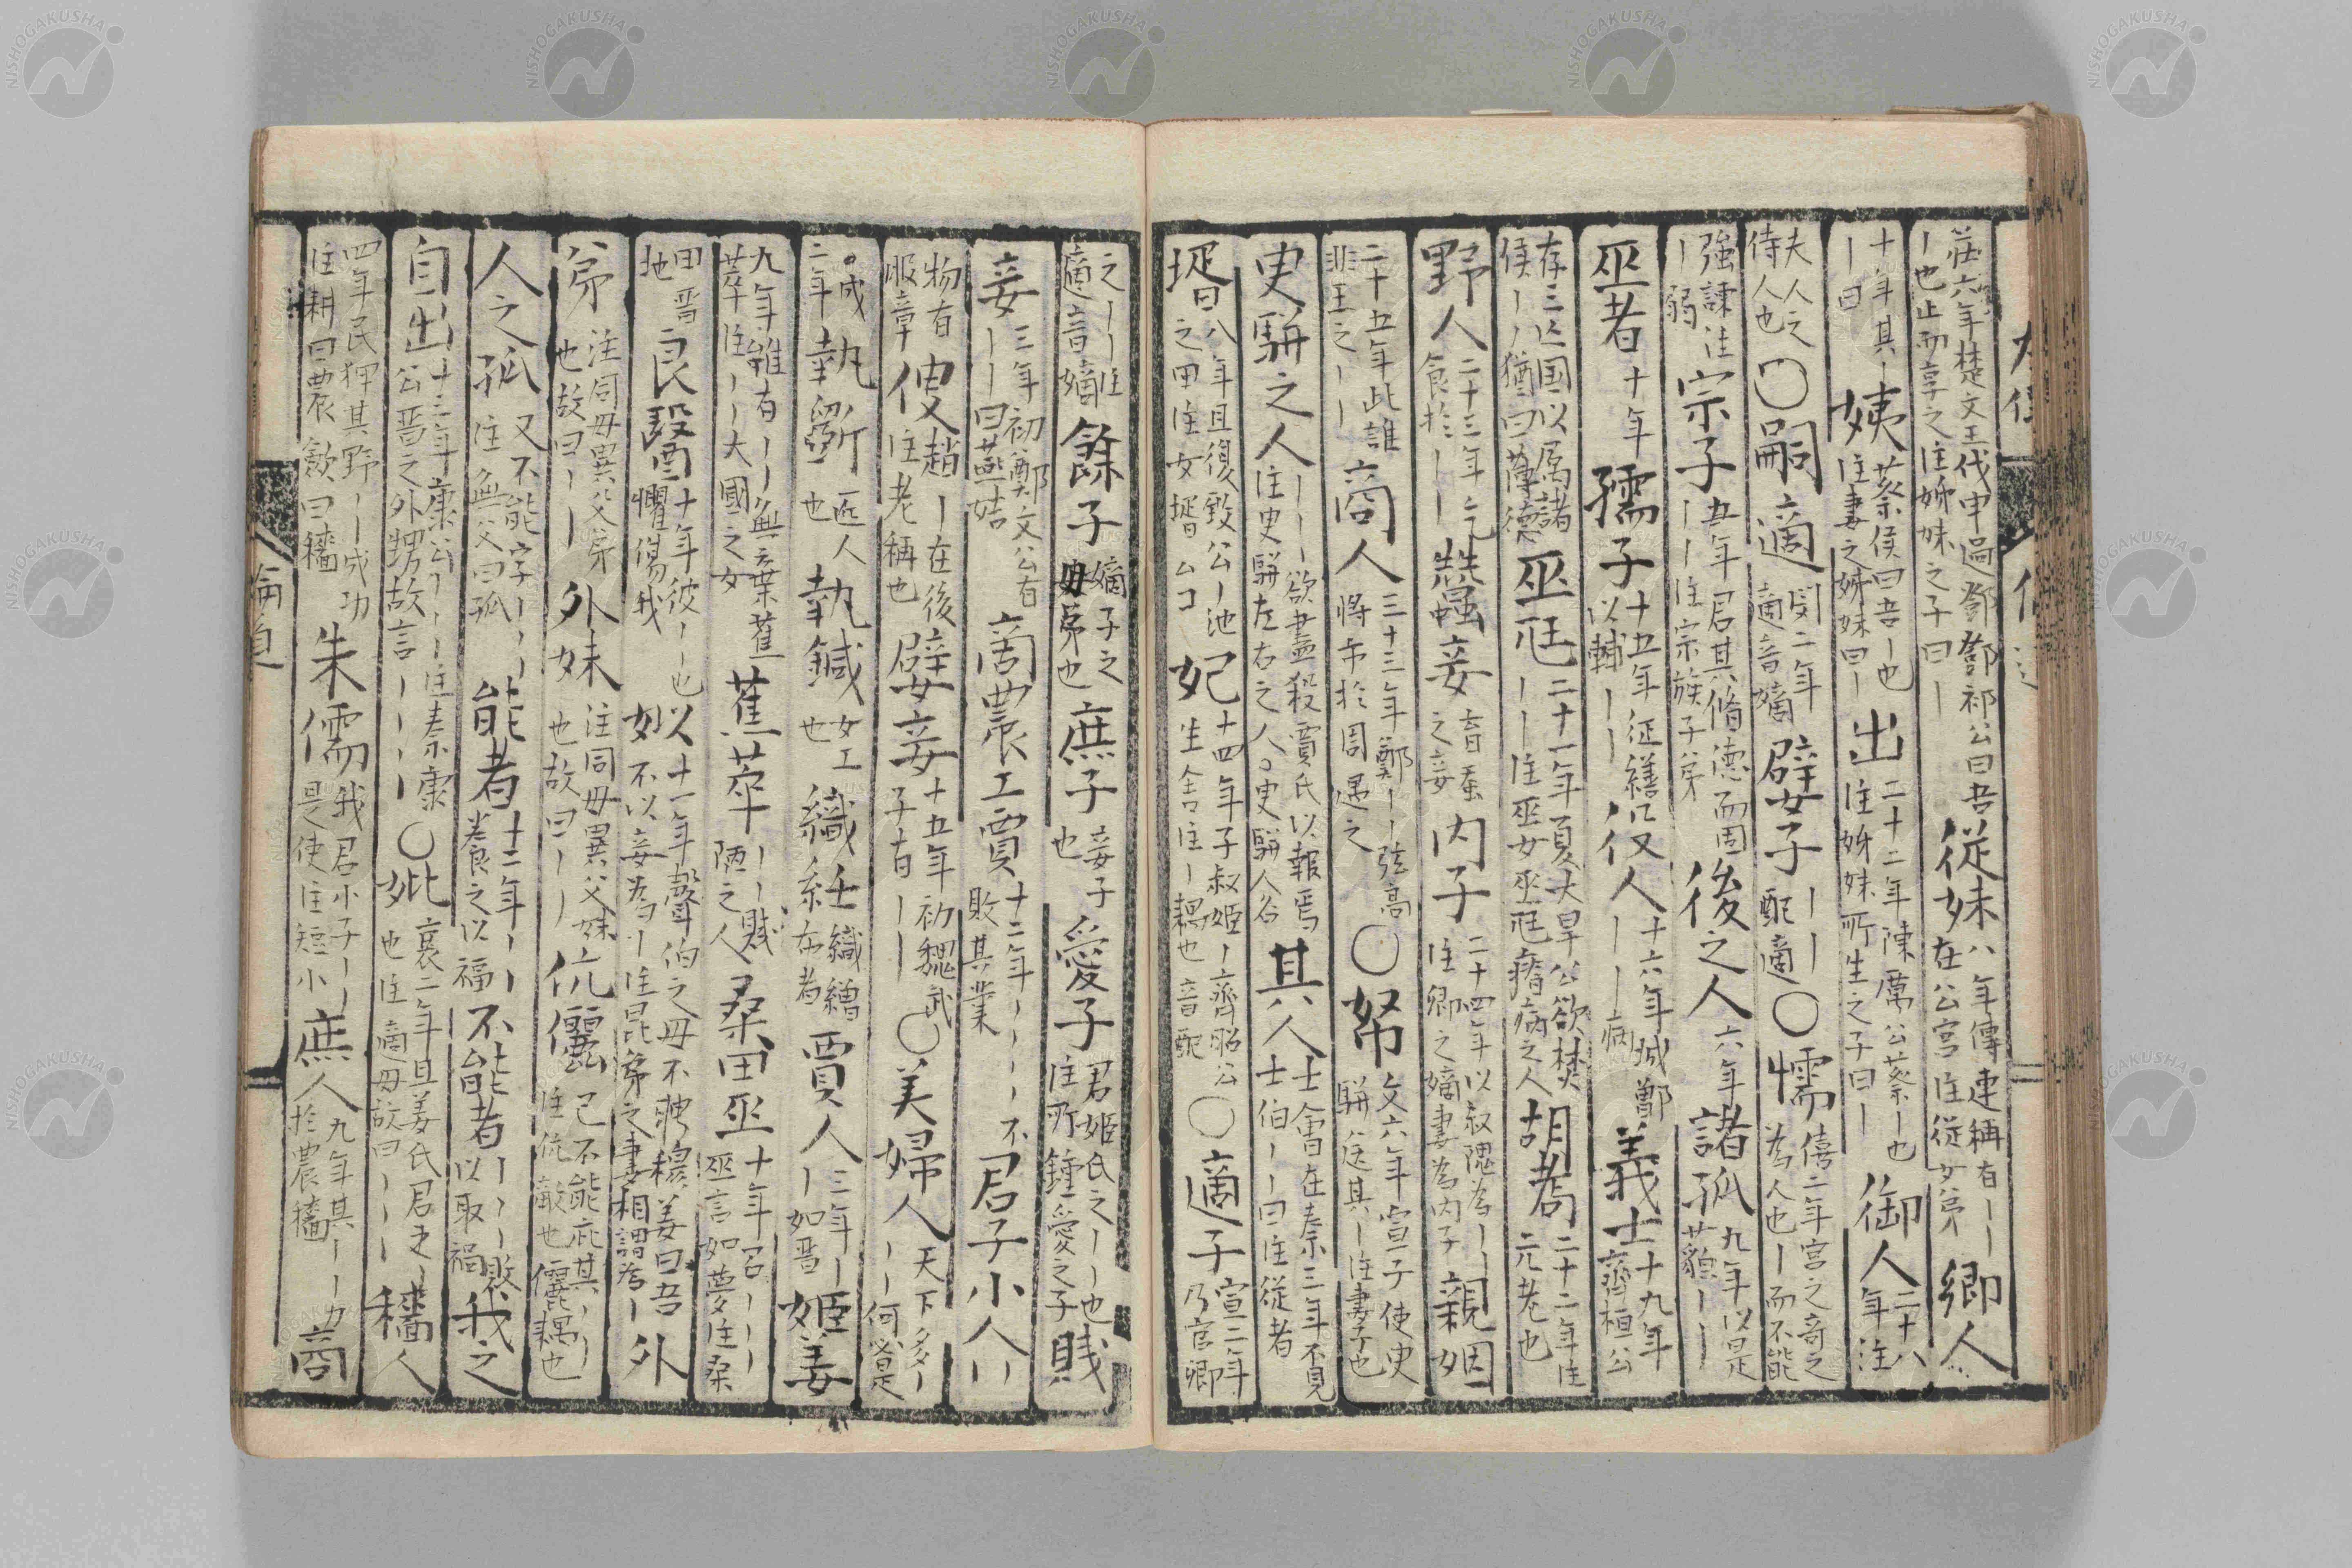 莊六年楚文王伐申過鄧鄧祁公曰吾
ー也止而享之注姊妹之子曰ー
從妹
八年傳連稱有ーー
在公宮注從女弟
卿人
十年其ー
ー曰
姨
蔡侯曰吾ー也
注妻之姊妹曰ー
出
二十二年陳厲公蔡ー也
注姊妹所生之子曰ー
御人
二十八
年注
夫人之
侍人也
〇嗣適
閔二年
適音嫡
嬖子
ーー
配適
〇懦
僖二年宮之奇之
為人也ー而不能
強諫注
ー弱
宗子
五年君其脩德而固
ーー注宗族子弟
後之人
六年
諸孤
九年以是
藐ーー
巫者
十年
孺子
十五年征繕
以輔ーー
役人
十六年城鄫
ーー病
義士
十九年
齊桓公
存三亡国以属諸
侯ーー猶曰薄德
巫尫
二十一年夏大旱公欲焚
ーー注巫女巫尫瘠病之人
胡耈
二十二年注
元老也
野人
二十三年乞
食於ーー
蠶妾
育蚕
之妾
内子
二十四年以叔隗為ーー
注卿之嫡妻為内子
親姻
二十五年此誰
非王之ーー
商人
三十三年鄭ーー弦高
將市於周遇之
〇帑
文六年宣子使史
駢送其ー注妻子也
史駢之人
ーー欲盡殺賈氏以報焉
注史駢左右之人〇史駢人谷
其人
士會在秦三年不見
士伯ーー曰注從者
壻
八年且復致公ー池
之田注女壻
妃
十四年子叔姬ー齊昭公
生舍注ー耦也 音配
〇適子
宣二年
乃宦卿
之ーー注
適音嫡
餘子
嫡子之
母弟也
庶子
妾子
也
愛子
君姬氏之ーー也
注所鍾愛之子
賤
妾
三年初鄭文公有
ーー曰燕姞
商農工賈
十二年ーーーー不
敗其業
君子小人
物有
服章
傁
趙ー在後
注老稱也
嬖妾
十五年初魏武
子有ーー
〇美婦人
天下多ー
ーー何必是
〇成
二年
執斲
匠人
也
執鍼
女工
也
織紝
織繒
布者
賈人
三年ー
ー如晋
姬姜
九年雖有ーー無棄蕉
萃注ーー大國之女
蕉萃
ーー賤
陋之人
桑田巫
十年召ーーー
巫言如夢注桑
田晋
地
良醫
十年彼ーー也
懼傷我
以妙
十一年聲伯之母不聘穆姜曰吾
不以妾為ー注昆弟之妻相謂為ー
外
弟
注同母異父弟
也故曰ーー
外妹
注同母異父妹
也故曰ーー
伉儷
己不能庇其ーー
注伉敵也儷耦也
人之孤
又不能字ーーー
注無父曰孤
能者
十三年ーー
養之以福
不能者
ーーー敗
以取禍
我之
自出
十三年康公ーーー注秦康
公晋之外甥故言ーーーー
〇妣
襄二年且姜氏君之ー
也注適母故曰ーー
穡人
四年民狎其野ーー成功
注耕曰農歛曰穡
朱儒
我君小子ーー
是使注短小
庶人
九年其ーー力
於農穡
商